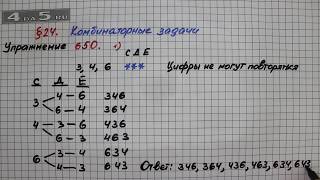 4APS.RU
§24. Комбинаторные задачи
Упражнение 650. 1)
С Д Е
3, 4, 6 *** Цифры не могут повторяться
С Д Е
3 4 – 6 346
6 – 4 364
4 3 – 6 436
6 – 3 463
6 3 – 4 634
4 – 3 643
Ответ: 346, 364, 436, 463, 634, 643